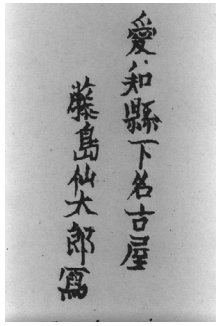 愛知縣下名古屋
藤島仙太郎寫